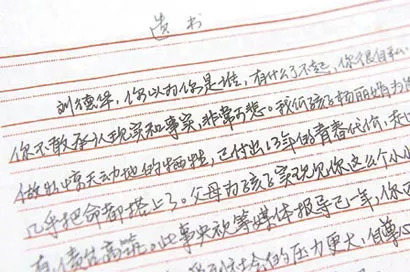 遗书
刘德华,你以为你是谁,有什么了不起,你很自私,
你不敢承认现实和事实,非常可悲。我低孩子杨丽娟为追
做的惊天动地的牺牲,已付出13年的青春代价,走
几乎把命都搭上了。父母为孩子实现见你这么个小小
责债台高筑。此事央视等媒体报导已一年,你
社会的压力更大,自尊心